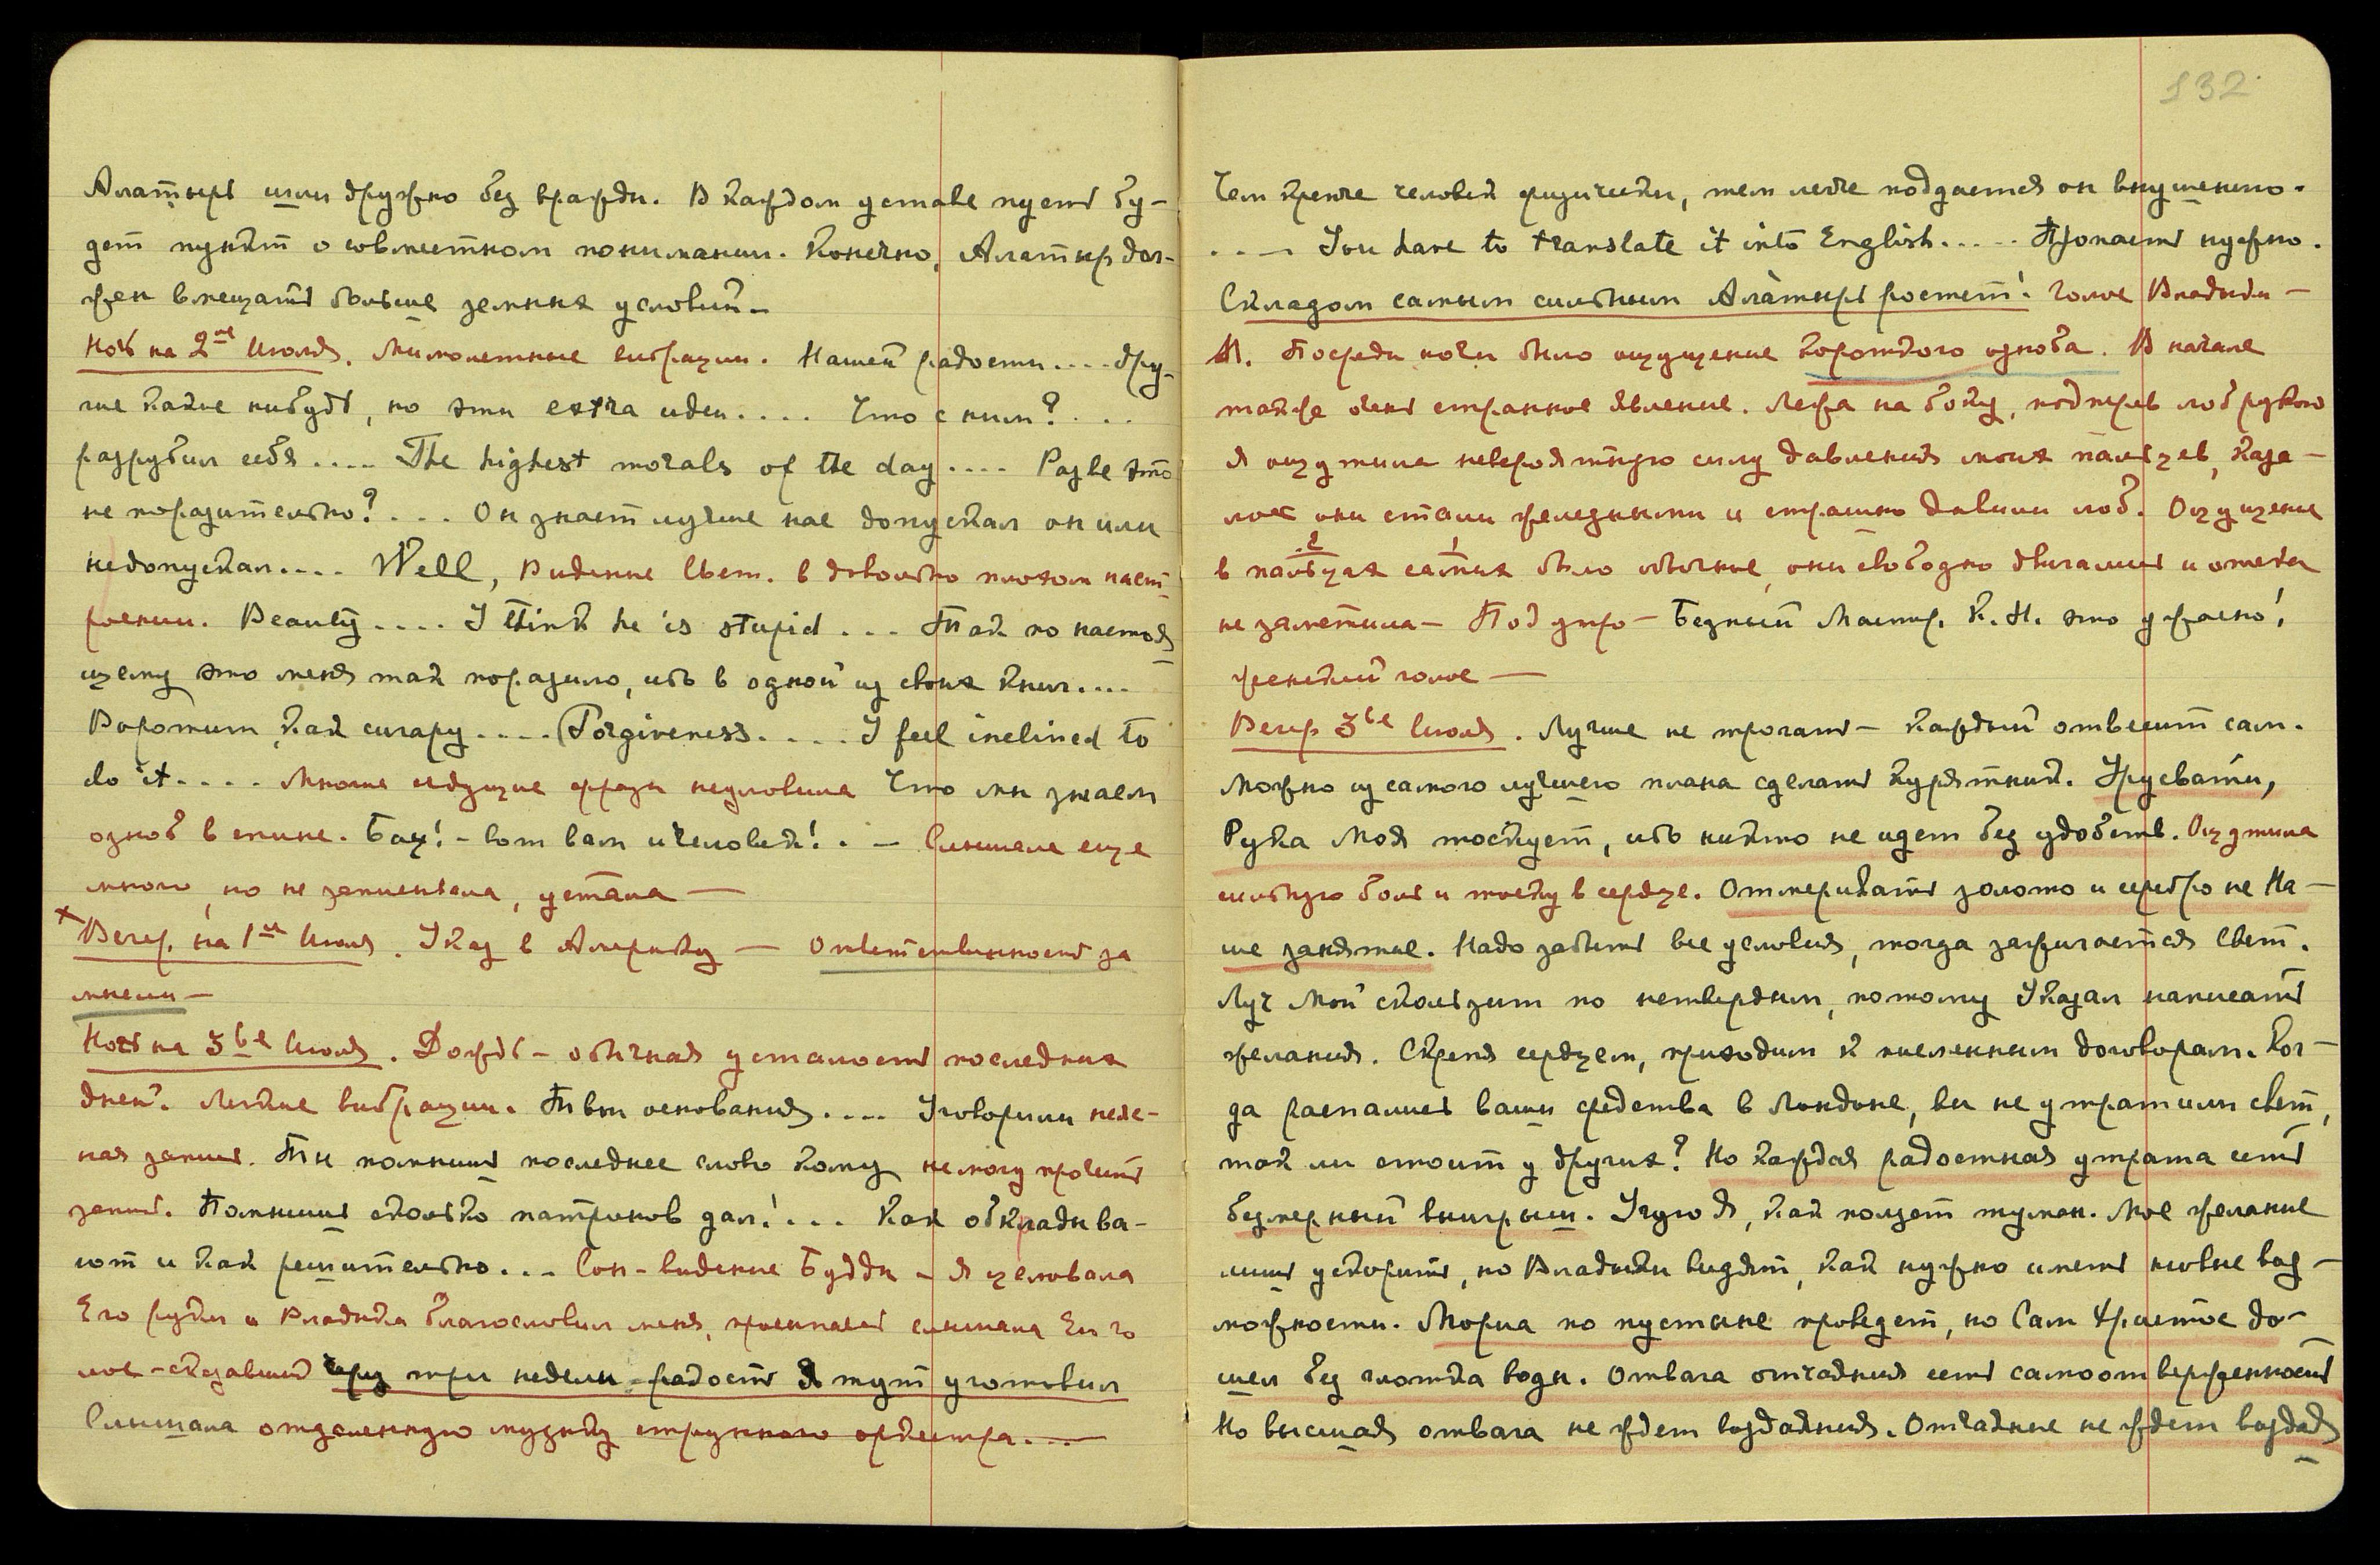 Алатырь шли дружно без вражды. В каждом уставе пусть бу-
дет пункт о совместном понимании. Конечно, Алатырь дол-
жен вмещать больше земных условий –
Ночь на 2ое Июля. Мимолетные вибрации. Нашей радости.... дру-
гие какие нибудь, но эти extra идеи.... Что с ним? ...
разрубил себя .... The highest morals of the day .... Разве это
не поразительно? ... Он знает лучше нас допускал он или
недопускал.... Well, Видение Свет. в довольно плохом наст-
роении. Beauty .... I think he is stupid ... Так по настоя
щему это меня так поразило, ибо в одной из своих книг....
Воротит, как сигару .... Forgiveness.... I feel inclined to
do it .... Многие идущие фразы неуловила Что мы знаем
озноб в спине. Бах! – вот вам и человек! . – Слышала еще
много, но не записывала, устала —
× Вечер на 1ое Июля. Указ в Америку — Ответственность за
мысли –
Ночь на 3ье Июля. Дождь – обычная усталость последних
дней. Легкие вибрации. Три основания .... Уговорили неяс-
ная запись. Ты помнишь последнее слово кому не могу прочесть
запись. Помнишь сколько патронов дал! ... Как обкладыва-
ют и как решительно... Сон-видение Будды – я целовала
Его руки и Владыка благословил меня, просыпаясь слышала Его го
лос – сказавший через три недели – радость Я тут уготовил
Слышала отдаленную музыку струнного оркестра....
132
Чем крепче человек физически, тем легче поддается он внушению.
.... You have to translate it into English..... Прочесть нужно.
Складом самым сильным Алатырь растет! Голос Владыки –
М. Посреди ночи было ощущение короткого озноба. В начале
также очень странное явление. Лежа на боку, подперев лоб рукою
я ощутила невероятную силу давления моих пальцев, каза-
лось они стали железными и страшно давили лоб. Ощущение
в пальцах самих было обычное, они свободно двигались и отека
не заметила – Под утро – Бедный Мастер К.Н. это ужасно!
женский голос —
Вечер 3ье Июля. Лучше не трогать – каждый ответит сам.
Можно из самого лучшего плана сделать курятник. Урусвати,
Рука Моя тоскует, ибо никто не идет без удобств. Ощутила
сильную боль и тоску в сердце. Отмеривать золото и серебро не На-
ше занятие. Надо забыть все условия, тогда зажигается Свет.
Луч Мой скользит по нетвердым, потому Указал написать
желания. Скрепя сердцем, приходим к письменным договорам. Ког-
да распались ваши средства в Лондоне, вы не утратили свет,
так ли стоит у других? Но каждая радостная утрата есть
безмерный выигрыш. Чую Я, как ползет туман. Мое желание
лишь ускорить, но Владыки видят, как нужно иметь новые воз-
можности. Мория по пустыне проведет, но Сам Христос до-
шел без глотка воды. Отвага отчаяния есть самоотверженность
Но высшая отвага не ждет воздаяния. Отчаяние не ждет воздая